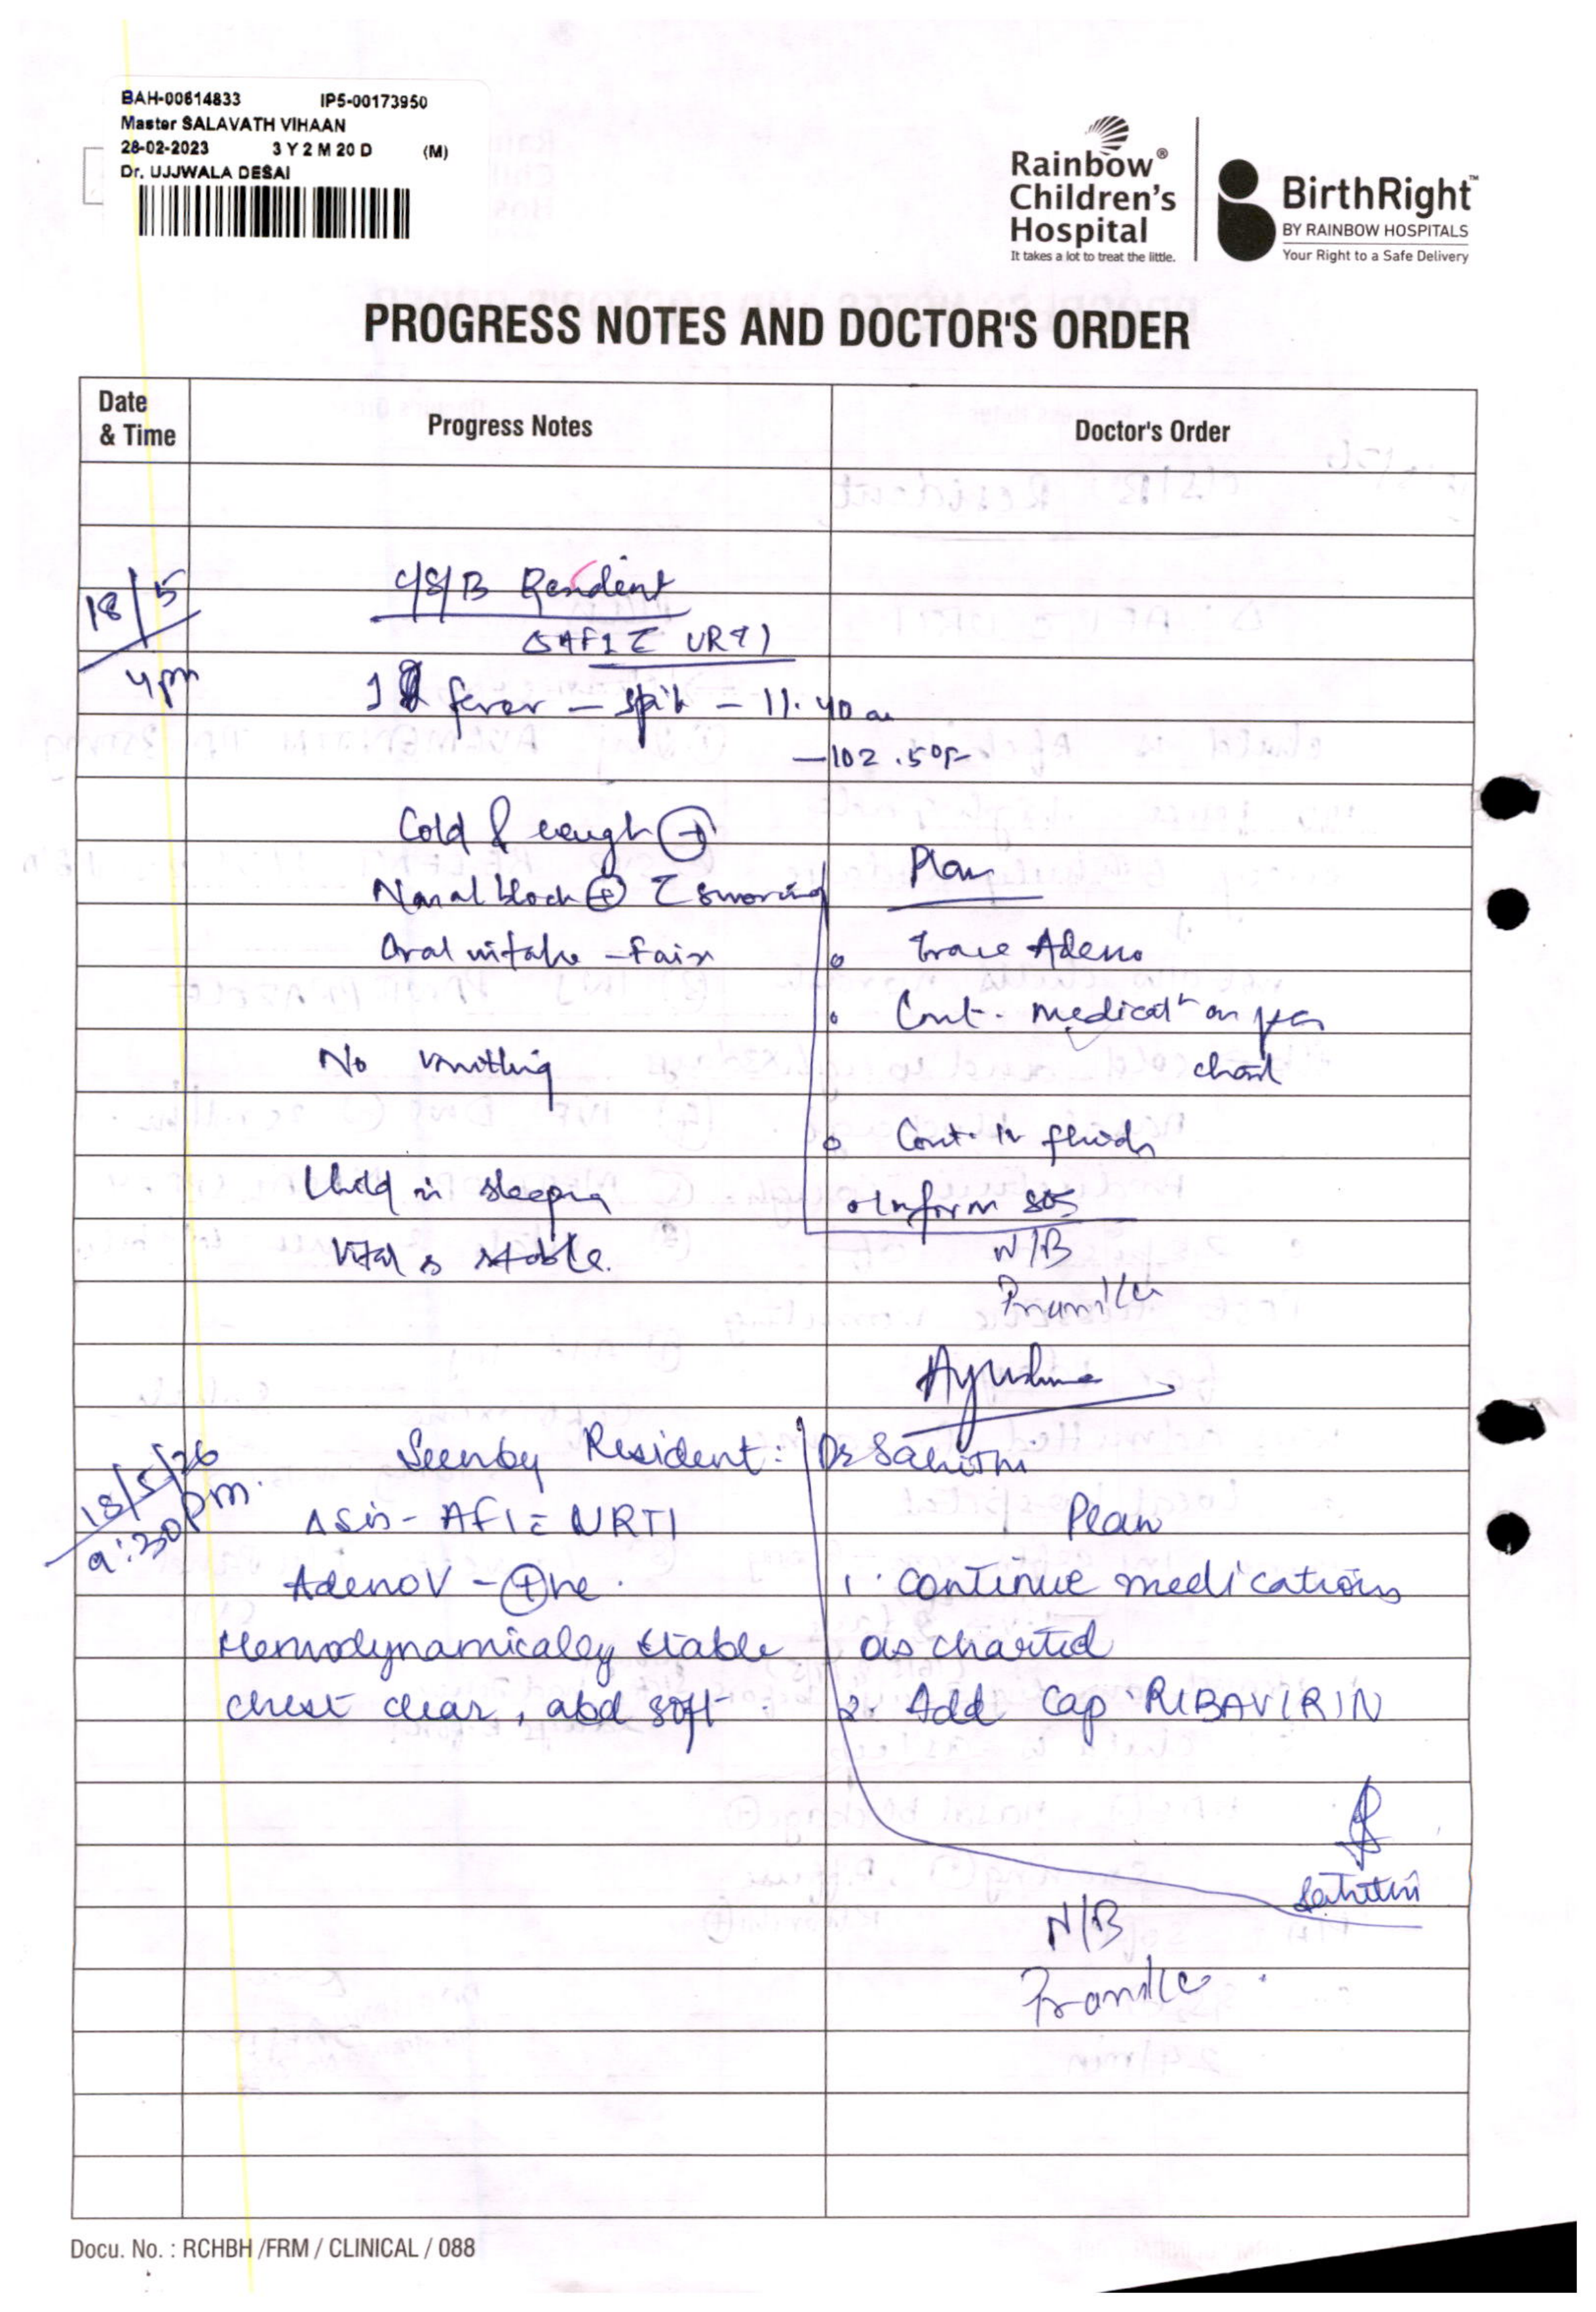 BAH-00614833 IP5-00173950
Master SALAVATH VIHAAN
28-02-2023 3 Y 2 M 20 D (M)
Dr. UJJWALA DESAI
Rainbow® Children's Hospital
It takes a lot to treat the little.
BirthRight™
BY RAINBOW HOSPITALS
Your Right to a Safe Delivery
PROGRESS NOTES AND DOCTOR'S ORDER
Date & Time Progress Notes Doctor's Order
18/5 4pm
C/S/B Resident
AFI c URTI
fever – spike – 11.40 am
– 102.5°F
Cold & cough ⊕
Nasal block ⊕ c snoring
Oral intake – Fair
No vomiting
Child is sleeping
Vitals stable.
Plan
Trace Adeno
Cont. medicatn as per
chart
Cont. IV fluids
Inform SOS
N/B
Pramila
Ayushma
18/5/26
9:30pm.
Seen by Resident: Dr Sahithi
AFI c URTI
Adeno V – ⊕ve.
Hemodynamically stable
chest clear, abd soft.
Plan
1. continue medications
as charted
2. Add Cap RIBAVIRIN
Sahithi
N/B
Pramila
Docu. No. : RCHBH /FRM / CLINICAL / 088